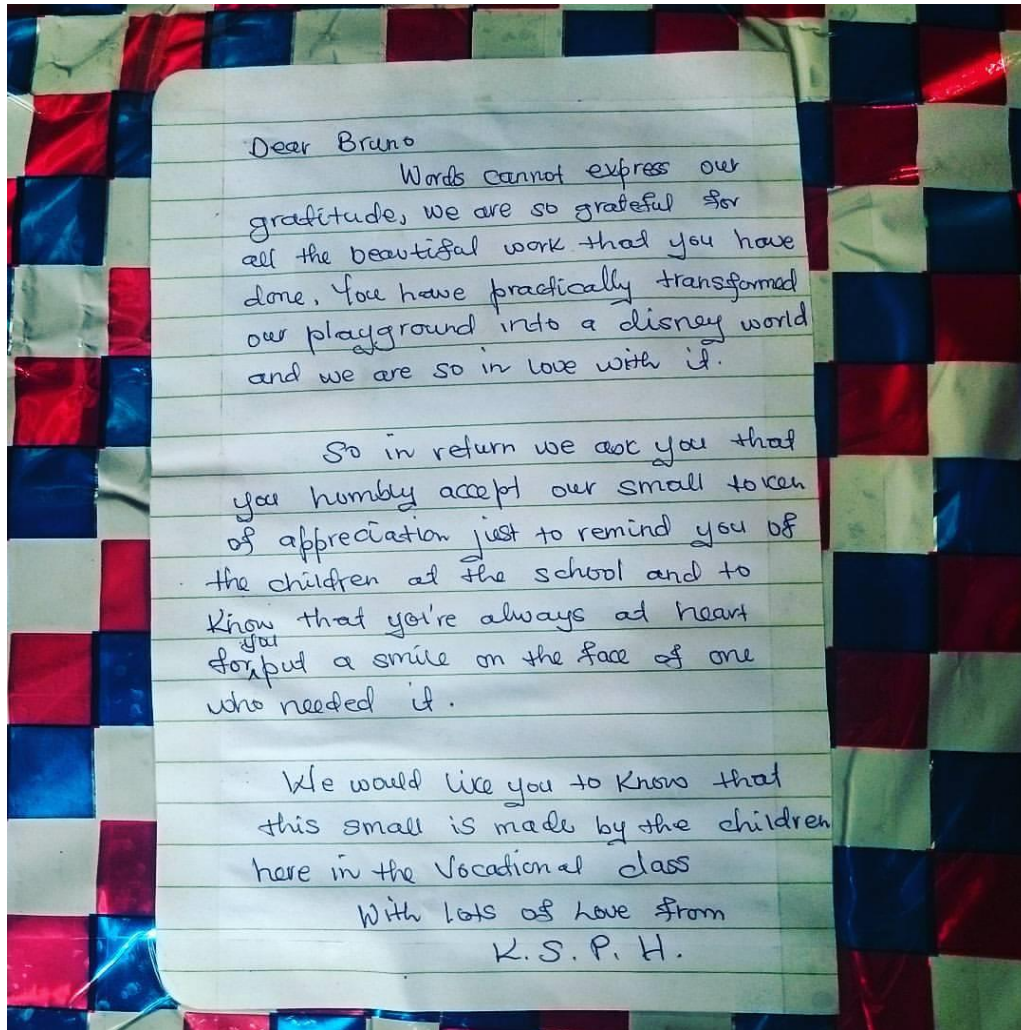 Dear Bruno
Words cannot express our
gratitude, we are so grateful for
all the beautiful work that you have
done. You have practically transformed
our playground into a disney world
and we are so in love with it.
So in return we ask you that
you humbly accept our small token
of appreciation just to remind you of
the children at the school and to
Know that you're always at heart
you
for put a smile on the face of one
who needed it.
We would like you to Know that
this small is made by the children
here in the Vocational class
With lots of Love from
K. S. P. H.